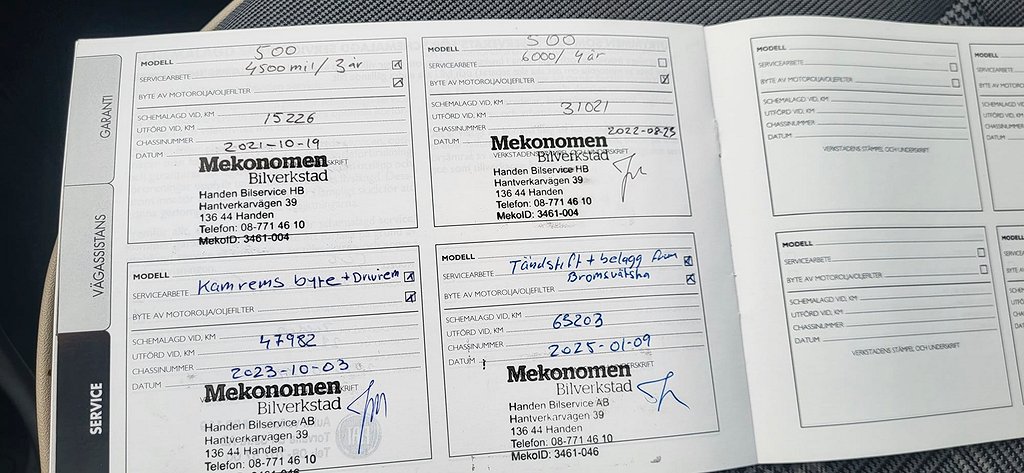 GARANTI
VÄGASSISTANS
SERVICE
500
MODELL
4500 mil/ 3 år
SERVICEARBETE
BYTE AV MOTOROLJA/OLJEFILTER
SCHEMALAGD VID, KM
UTFÖRD VID, KM 15226
CHASSINUMMER
DATUM 2021-10-19
Mekonomen
Bilverkstad
Handen Bilservice HB
Hantverkarvägen 39
136 44 Handen
Telefon: 08-771 46 10
MekoID: 3461-004
500
MODELL
6000/ 4 år
SERVICEARBETE
BYTE AV MOTOROLJA/OLJEFILTER
SCHEMALAGD VID, KM
UTFÖRD VID, KM 31021
CHASSINUMMER
DATUM 2022-08-25
Mekonomen
Bilverkstad
Handen Bilservice HB
Hantverkarvägen 39
136 44 Handen
Telefon: 08-771 46 10
MekoID: 3461-004
MODELL
SERVICEARBETE Kamrems byte + Drivrem
BYTE AV MOTOROLJA/OLJEFILTER
SCHEMALAGD VID, KM
UTFÖRD VID, KM 47982
CHASSINUMMER
DATUM 2023-10-03
Mekonomen
Bilverkstad
Handen Bilservice AB
Hantverkarvägen 39
136 44 Handen
Telefon: 08-771 46 10
MODELL
SERVICEARBETE Tändstift + belägg fram
Bromsvätska
BYTE AV MOTOROLJA/OLJEFILTER
SCHEMALAGD VID, KM
UTFÖRD VID, KM 65203
CHASSINUMMER
DATUM 2025-01-09
Mekonomen
Bilverkstad
Handen Bilservice AB
Hantverkarvägen 39
136 44 Handen
Telefon: 08-771 46 10
MekoID: 3461-046
MODELL
SERVICEARBETE
BYTE AV MOTOROLJA/OLJEFILTER
SCHEMALAGD VID, KM
UTFÖRD VID, KM
CHASSINUMMER
DATUM
VERKSTADENS STÄMPEL OCH UNDERSKRIFT
MODELL
SERVICEARBETE
BYTE AV MOTOROLJA/OLJEFILTER
SCHEMALAGD VID, KM
UTFÖRD VID, KM
CHASSINUMMER
DATUM
VERKSTADENS STÄMPEL OCH UNDERSKRIFT
MODELL
SERVICEARBE
BYTE AV MOT
SCHEMALAGD
UTFÖRD VID, K
CHASSINUMM
DATUM
MODELL
SERVICEARB
BYTE AV MO
SCHEMALAG
UTFÖRD VID
CHASSINUM
DATUM